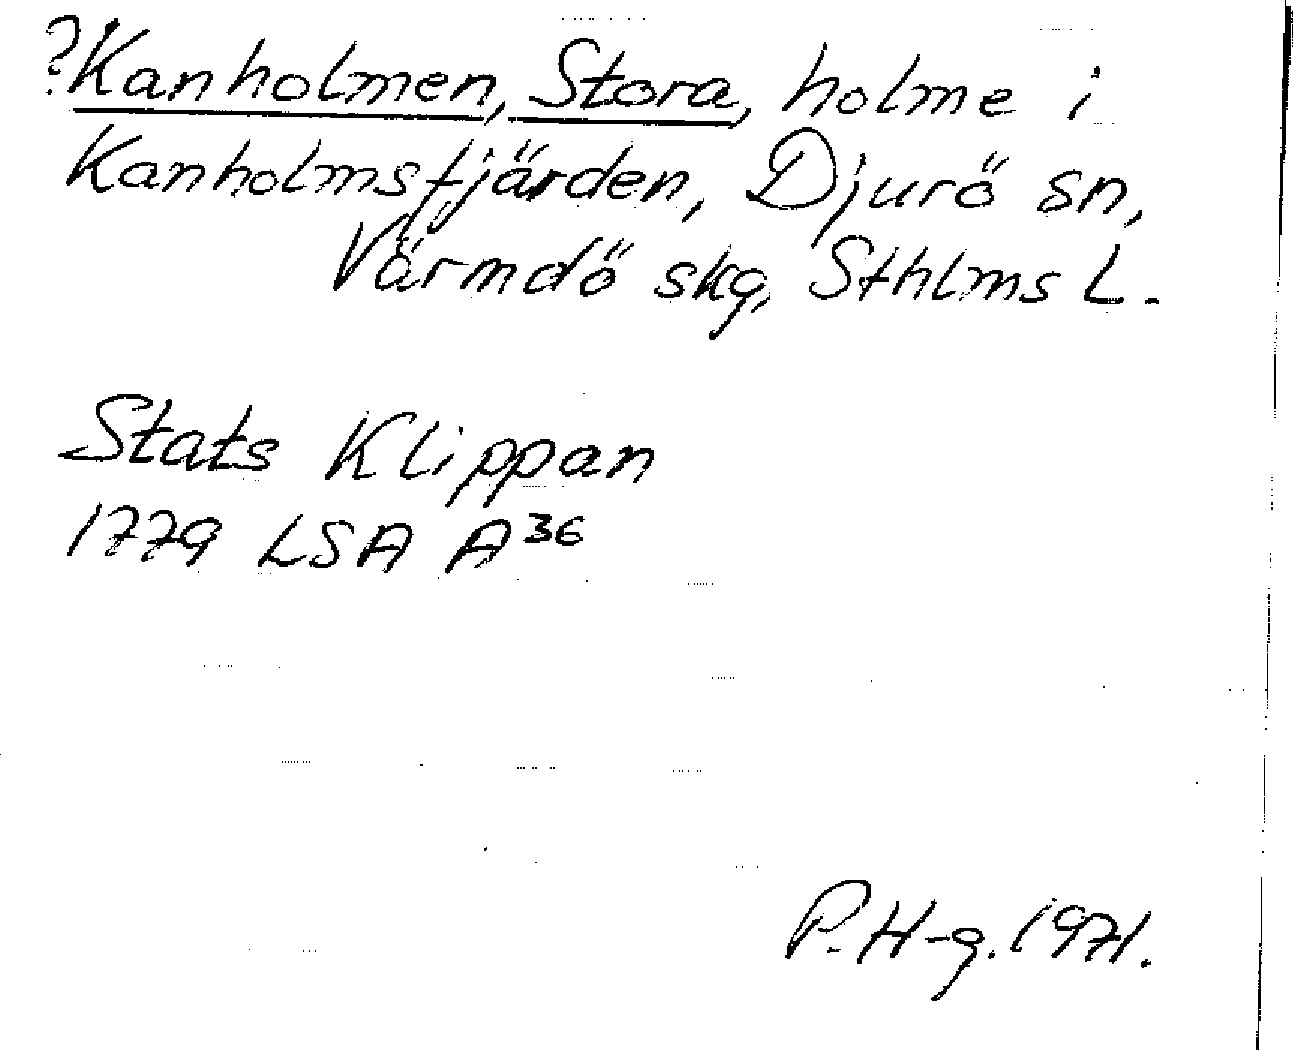 ?Kanholmen, Stora, holme i
Kanholmsfjärden, Djurö sn,
Värmdö skg, Sthlms L.
Stats Klippan
1779 LSA A³⁶
P. H-g. 1971.